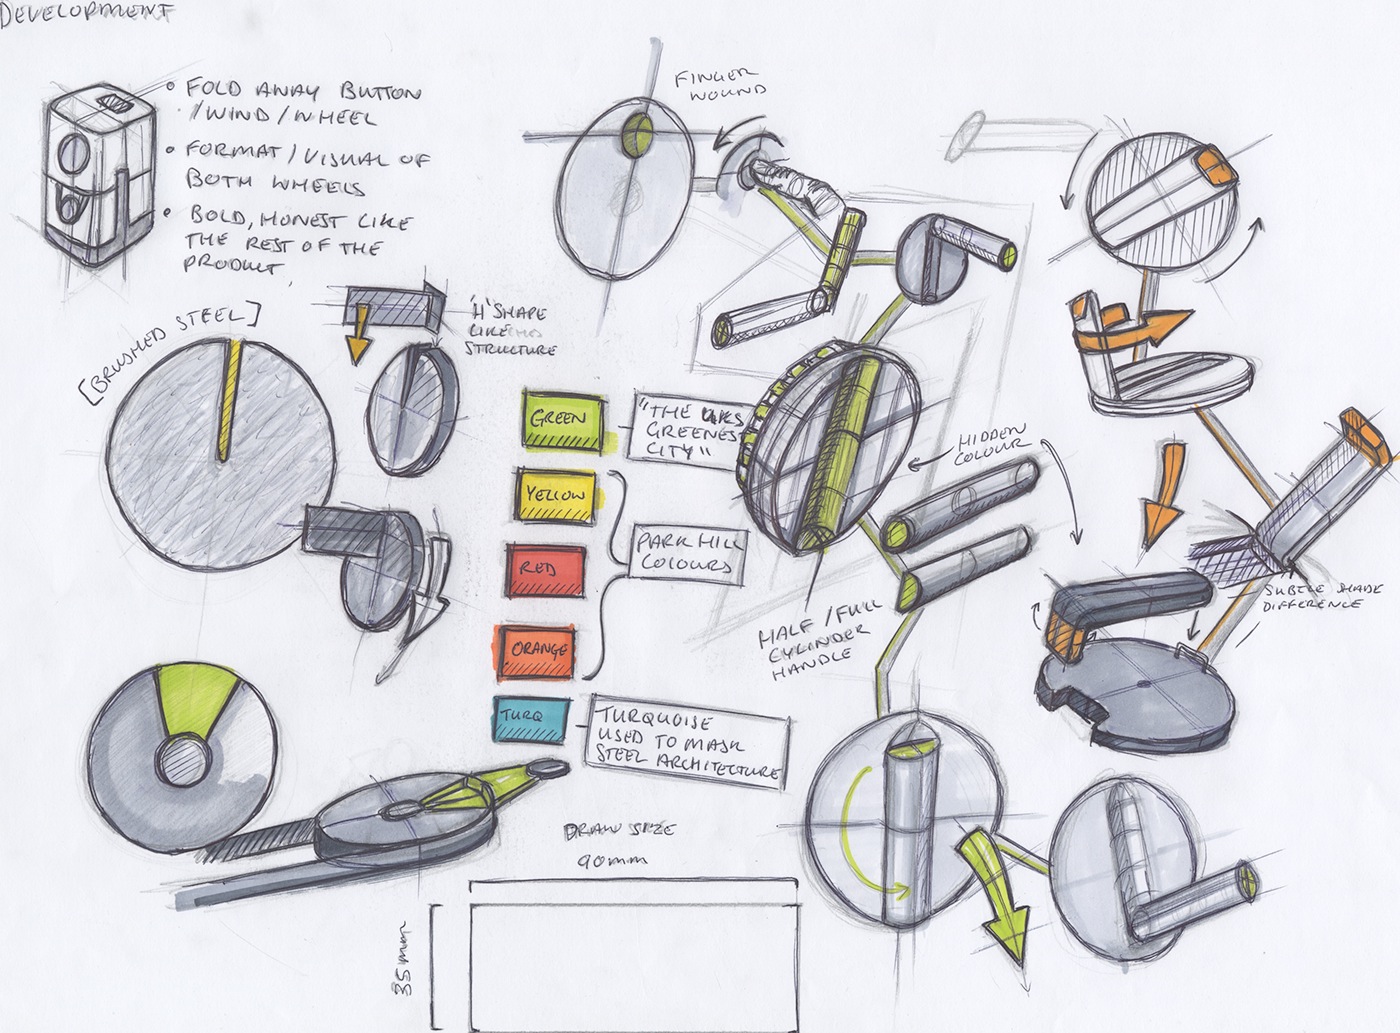 DEVELOPMENT
• FOLD AWAY BUTTON
/WIND/WHEEL
• FORMAT/VISUAL OF
BOTH WHEELS
• BOLD, HONEST LIKE
THE REST OF THE
PRODUCT.
[BRUSHED STEEL]
'H' SHAPE
LIKE
STRUCTURE
FINGER
WOUND
GREEN
"THE UKS
GREENEST
CITY"
YELLOW
RED
ORANGE
PARK HILL
COLOURS
TURQ
TURQUOISE
USED TO MASK
STEEL ARCHITECTURE
HIDDEN
COLOUR
HALF/FULL
CYLINDER
HANDLE
SUBTLE SHADE
DIFFERENCE
DRAW SIZE
90mm
35mm